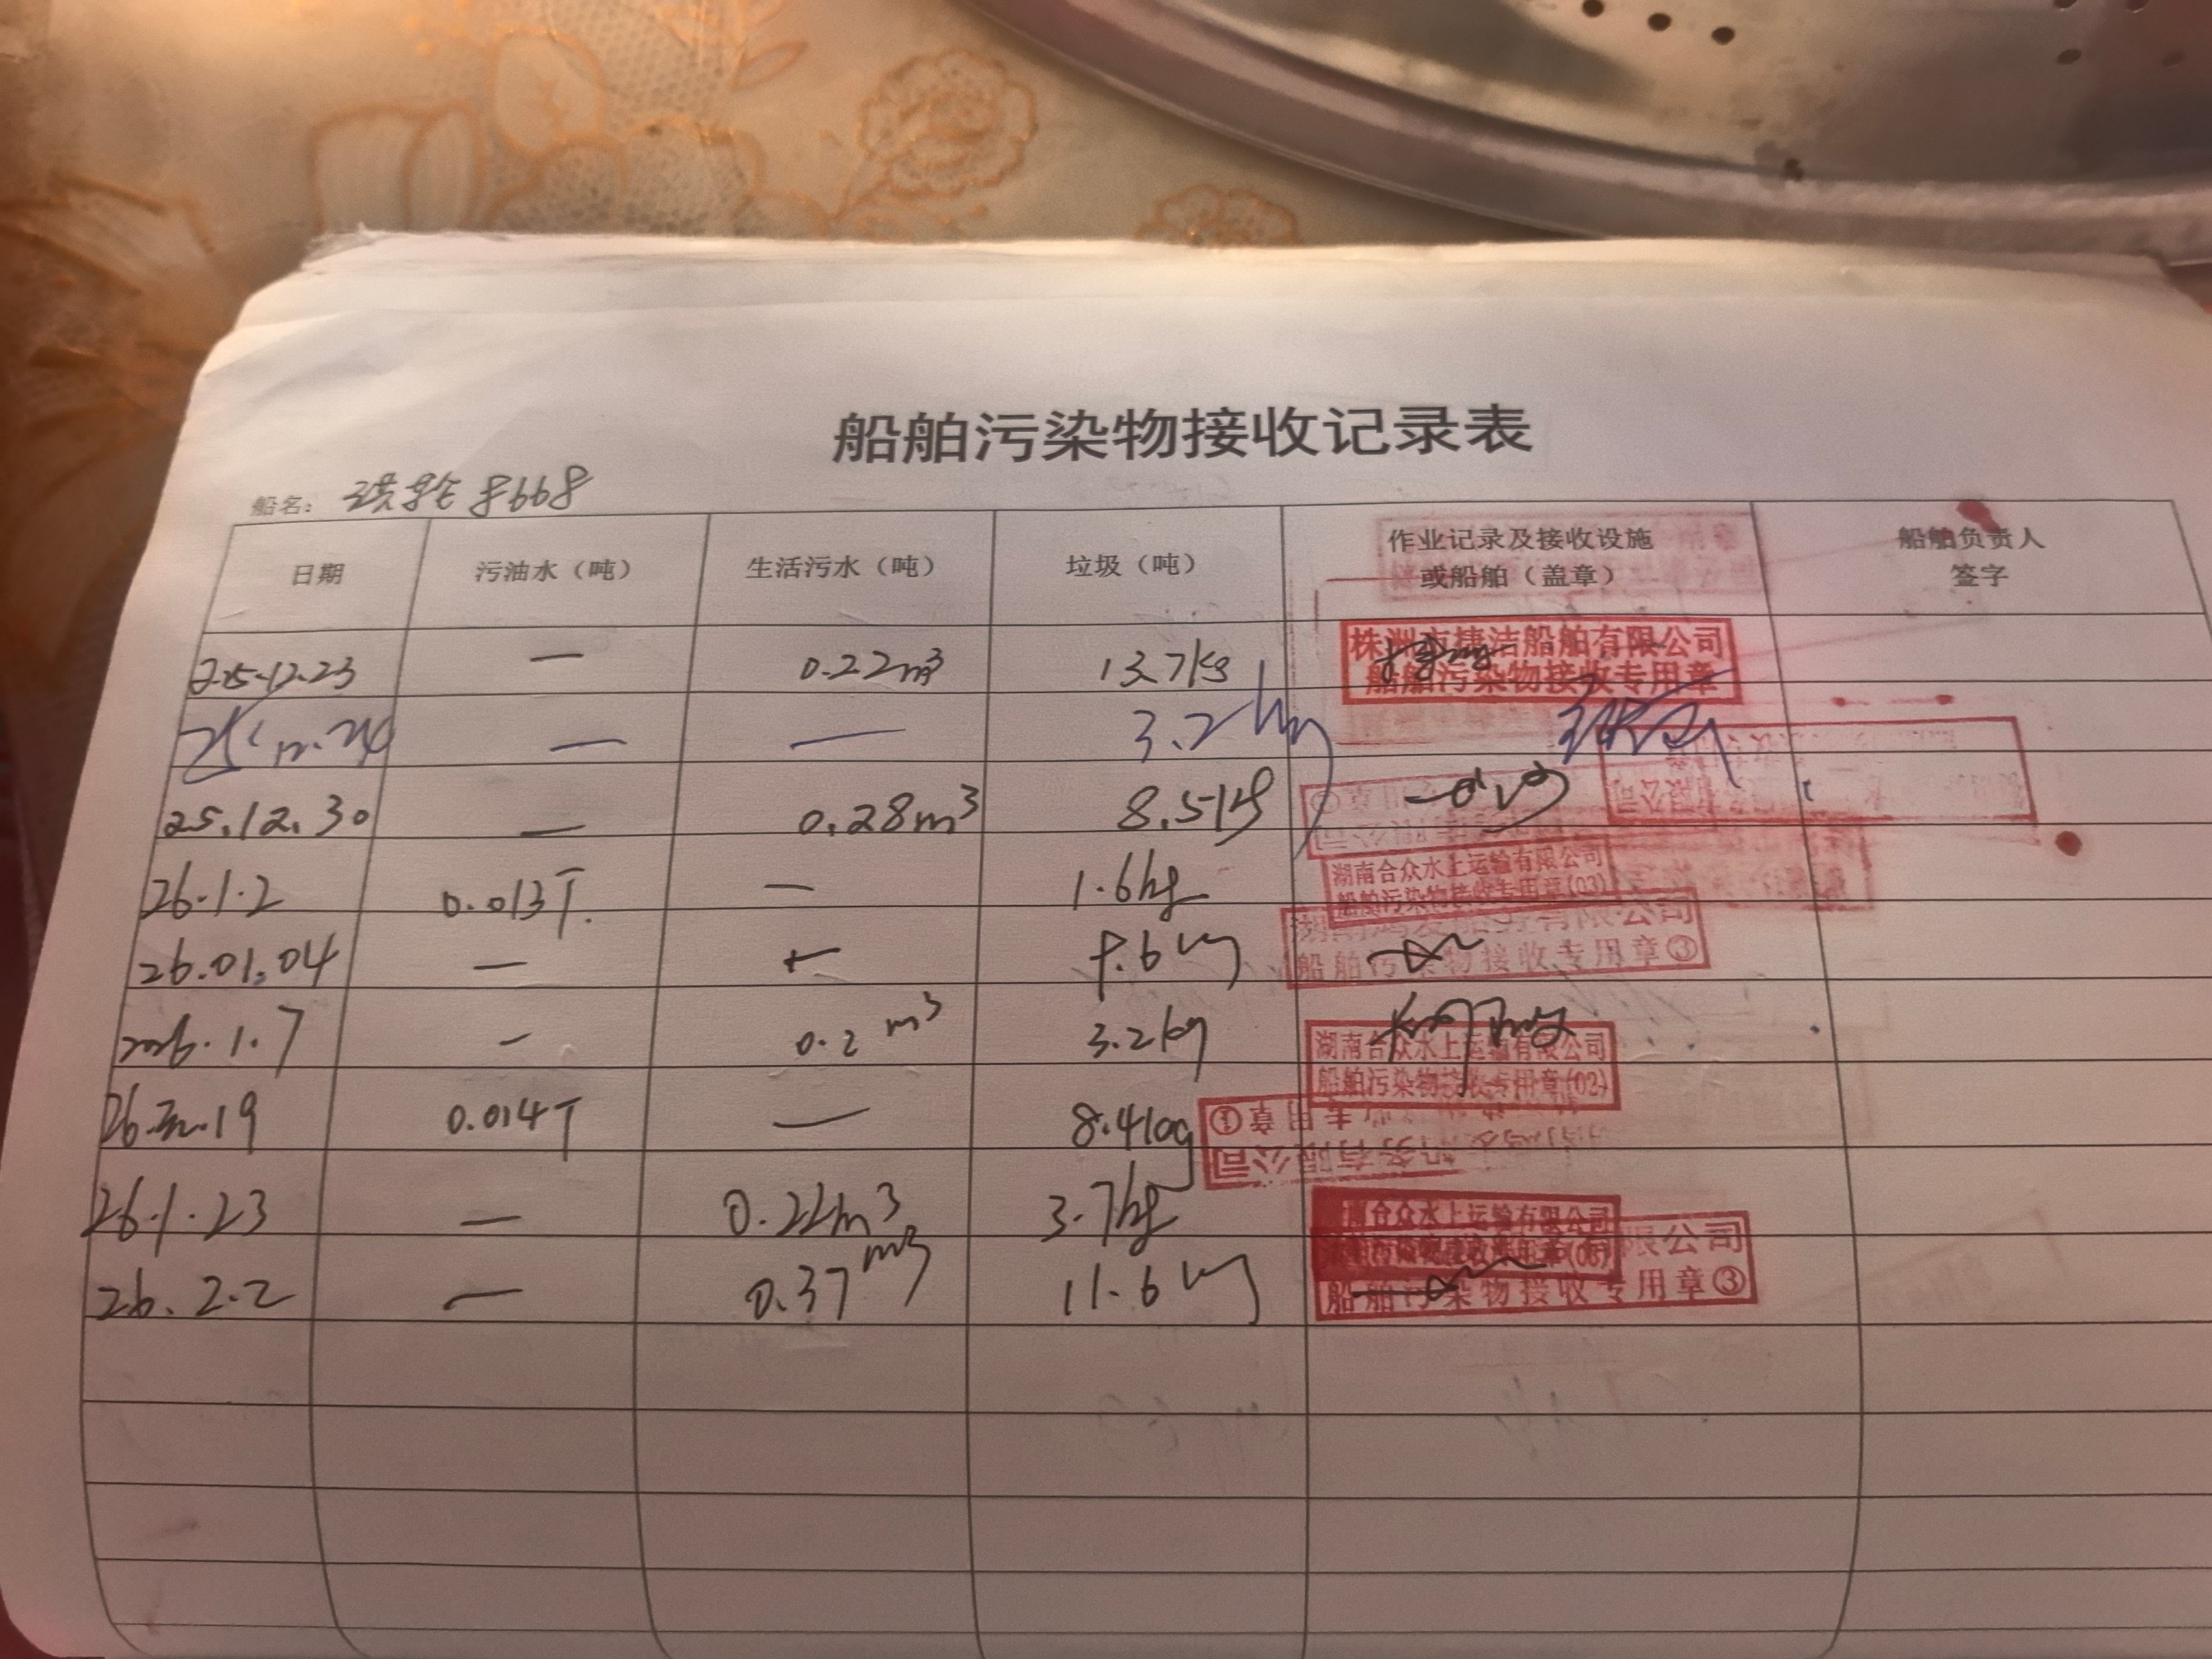 船舶污染物接收记录表
船名： 8668
日期 污油水（吨） 生活污水（吨） 垃圾（吨） 作业记录及接收设施或船舶（盖章） 船舶负责人签字
25.12.23 — 0.22m³ 13.7kg 株洲市捷洁船舶有限公司 船舶污染物接收专用章
— — 3.2kg
25.12.30 — 0.28m³ 8.5kg
26.1.2 0.013T. — 1.6kg 湖南合众水上运输有限公司 船舶污染物接收专用章(03)
26.01.04 — — 9.6kg 船舶污染物接收专用章③
2026.1.7 — 0.2m³ 3.2kg 湖南合众水上运输有限公司 船舶污染物接收专用章(02)
0.014T — 8.4kg
26.1.23 — 0.22m³ 3.7kg 合众水上运输有限公司
26.2.2 — 0.37m³ 11.6kg 限公司 船舶污染物接收专用章③